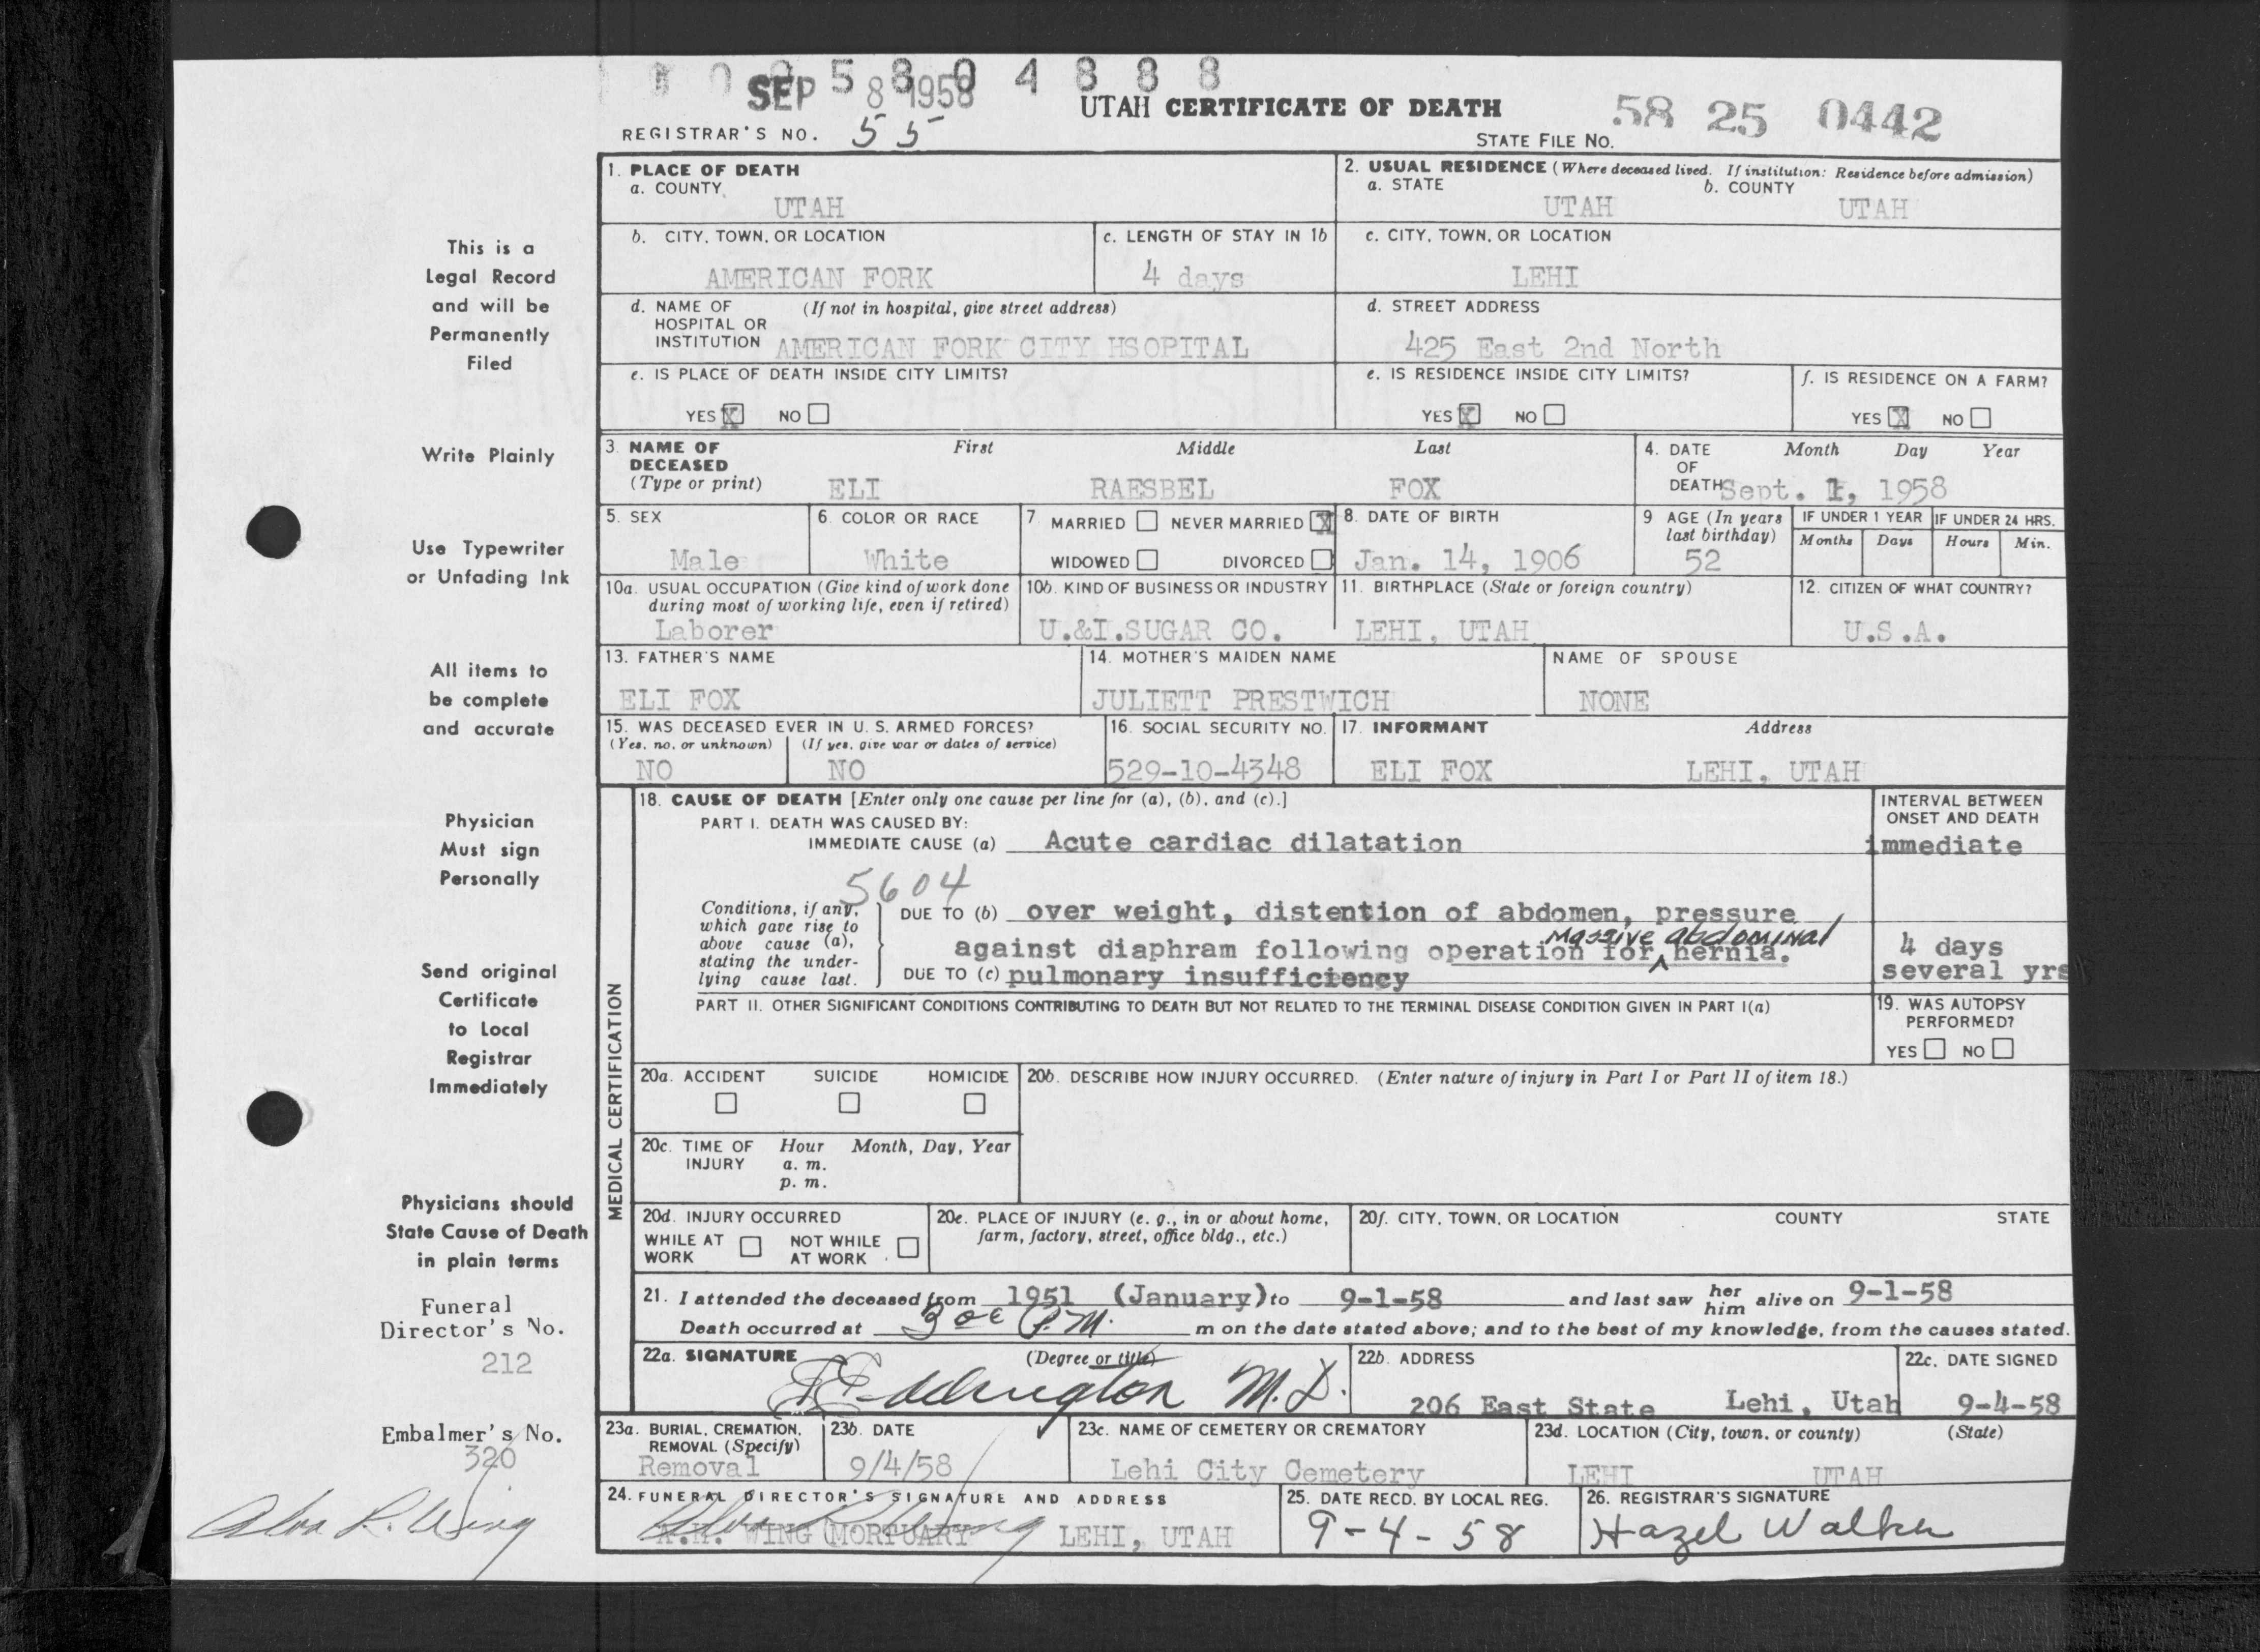 SEP 8 1958
UTAH CERTIFICATE OF DEATH
58 25 0442
REGISTRAR'S NO. 55
STATE FILE NO.
1. PLACE OF DEATH
a. COUNTY
UTAH
2. USUAL RESIDENCE (Where deceased lived. If institution: Residence before admission)
a. STATE b. COUNTY
UTAH UTAH
b. CITY, TOWN, OR LOCATION
AMERICAN FORK
c. LENGTH OF STAY IN 1b
4 days
c. CITY, TOWN, OR LOCATION
LEHI
d. NAME OF (If not in hospital, give street address)
HOSPITAL OR
INSTITUTION AMERICAN FORK CITY HSOPITAL
d. STREET ADDRESS
425 East 2nd North
e. IS PLACE OF DEATH INSIDE CITY LIMITS?
YES X NO
e. IS RESIDENCE INSIDE CITY LIMITS?
YES X NO
f. IS RESIDENCE ON A FARM?
YES X NO
3. NAME OF DECEASED (Type or print)
First Middle Last
ELI RAESBEL FOX
4. DATE OF DEATH
Month Day Year
Sept. 1, 1958
5. SEX
Male
6. COLOR OR RACE
White
7. MARRIED NEVER MARRIED X
WIDOWED DIVORCED
8. DATE OF BIRTH
Jan. 14, 1906
9 AGE (In years last birthday)
52
IF UNDER 1 YEAR IF UNDER 24 HRS.
Months Days Hours Min.
10a. USUAL OCCUPATION (Give kind of work done
during most of working life, even if retired)
Laborer
10b. KIND OF BUSINESS OR INDUSTRY
U.&I.SUGAR CO.
11. BIRTHPLACE (State or foreign country)
LEHI, UTAH
12. CITIZEN OF WHAT COUNTRY?
U.S.A.
13. FATHER'S NAME
ELI FOX
14. MOTHER'S MAIDEN NAME
JULIETT PRESTWICH
NAME OF SPOUSE
NONE
15. WAS DECEASED EVER IN U. S. ARMED FORCES?
(Yes, no, or unknown) (If yes, give war or dates of service)
NO NO
16. SOCIAL SECURITY NO.
529-10-4348
17. INFORMANT Address
ELI FOX LEHI, UTAH
MEDICAL CERTIFICATION
18. CAUSE OF DEATH [Enter only one cause per line for (a), (b), and (c).]
INTERVAL BETWEEN
ONSET AND DEATH
PART I. DEATH WAS CAUSED BY:
IMMEDIATE CAUSE (a) Acute cardiac dilatation immediate
5604
Conditions, if any,
which gave rise to
above cause (a),
stating the under-
lying cause last.
DUE TO (b) over weight, distention of abdomen, pressure
massive abdominal
against diaphram following operation for hernia. 4 days
DUE TO (c) pulmonary insufficiency several yrs
PART II. OTHER SIGNIFICANT CONDITIONS CONTRIBUTING TO DEATH BUT NOT RELATED TO THE TERMINAL DISEASE CONDITION GIVEN IN PART I(a)
19. WAS AUTOPSY
PERFORMED?
YES NO
20a. ACCIDENT SUICIDE HOMICIDE
20b. DESCRIBE HOW INJURY OCCURRED. (Enter nature of injury in Part I or Part II of item 18.)
20c. TIME OF INJURY
Hour Month, Day, Year
a. m.
p. m.
20d. INJURY OCCURRED
WHILE AT WORK NOT WHILE AT WORK
20e. PLACE OF INJURY (e. g., in or about home,
farm, factory, street, office bldg., etc.)
20f. CITY, TOWN, OR LOCATION COUNTY STATE
21. I attended the deceased from 1951 (January) to 9-1-58 and last saw her him alive on 9-1-58
Death occurred at 3 P.M. m on the date stated above; and to the best of my knowledge, from the causes stated.
22a. SIGNATURE (Degree or title)
Eddington M.D.
22b. ADDRESS
206 East State Lehi, Utah
22c. DATE SIGNED
9-4-58
23a. BURIAL, CREMATION,
REMOVAL (Specify)
Removal
23b. DATE
9/4/58
23c. NAME OF CEMETERY OR CREMATORY
Lehi City Cemetery
23d. LOCATION (City, town, or county) (State)
LEHI UTAH
24. FUNERAL DIRECTOR'S SIGNATURE AND ADDRESS
WING MORTUARY LEHI, UTAH
25. DATE RECD. BY LOCAL REG.
9-4-58
26. REGISTRAR'S SIGNATURE
Hazel Walker
This is a
Legal Record
and will be
Permanently
Filed
Write Plainly
Use Typewriter
or Unfading Ink
All items to
be complete
and accurate
Physician
Must sign
Personally
Send original
Certificate
to Local
Registrar
Immediately
Physicians should
State Cause of Death
in plain terms
Funeral
Director's No.
212
Embalmer's No.
320
Alva R. Wing